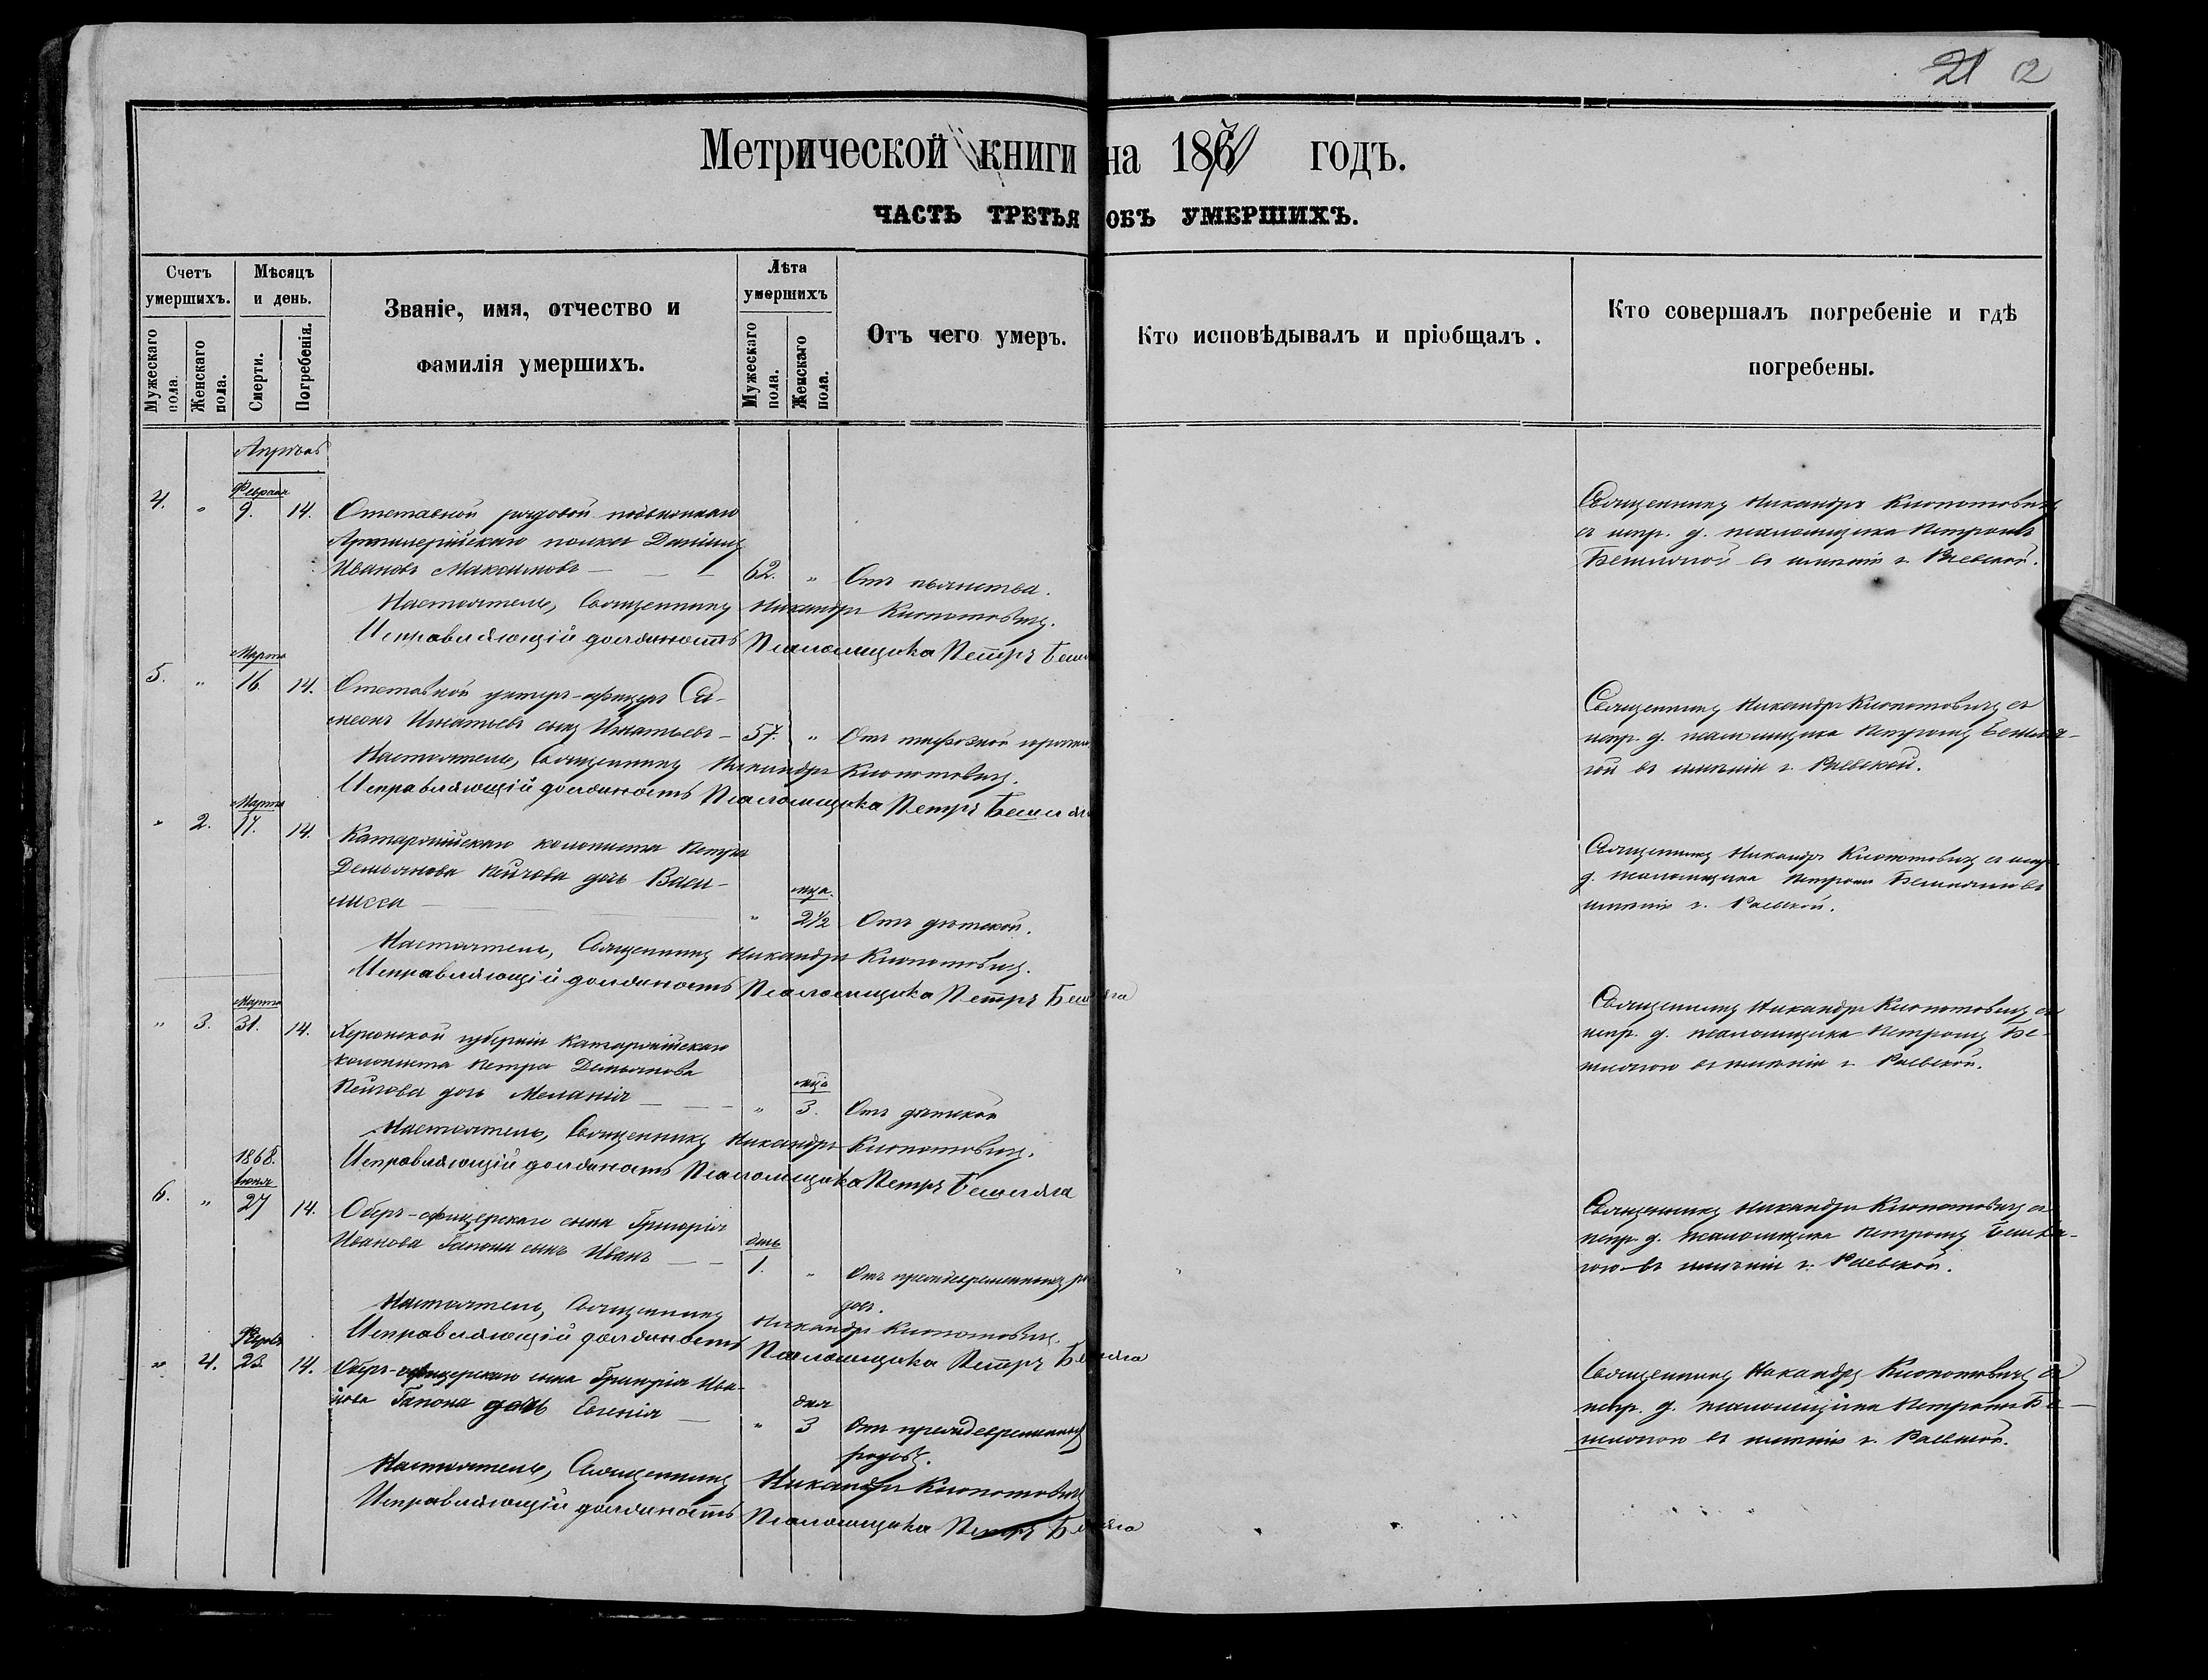 21 12
Метрической книги на 1870 годъ.
ЧАСТЬ ТРЕТЬЯ ОБЪ УМЕРШИХЪ.
Счетъ умершихъ.
Мужескаго пола.
Женскаго пола.
Мѣсяцъ и день.
Смерти.
Погребенія.
Званіе, имя, отчество и
фамилія умершихъ.
Лѣта умершихъ
Мужескаго пола.
Женскаго пола.
Отъ чего умеръ.
Кто исповѣдывалъ и пріобщалъ.
Кто совершалъ погребеніе и гдѣ
погребены.
Апрѣль
Февраля
4. " 9. 14. Отставной рядовой
Артиллерійскаго полка Даніилъ
Ивановъ Максимовъ 62. " Отъ пьянства.
Настоятель, Священникъ Никандръ Клопотовичъ.
Исправляющій должность Псаломщика Петръ
Священникъ Никандръ Клопотовичъ
съ испр. д. псаломщика Петромъ
въ имѣніи г. Раевской.
Марта
5. " 16 14. Отставной унтеръ-офицеръ Си-
меонъ Игнатьевъ сынъ Игнатьевъ 57. " Отъ тифозной
Настоятель, Священникъ Никандръ Клопотовичъ.
Исправляющій должность Псаломщика Петръ
Священникъ Никандръ Клопотовичъ съ
испр. д. псаломщика Петромъ
въ имѣніи г. Раевской.
Марта
" 2. 17. 14. Катаржійскаго колониста Петра
Демьянова дочь Васи-
лисса " мца. 2½ Отъ дѣтской.
Настоятель, Священникъ Никандръ Клопотовичъ.
Исправляющій должность Псаломщика Петръ
Священникъ Никандръ Клопотовичъ съ испр.
д. псаломщика Петромъ въ
имѣніи г. Раевской.
Марта
" 3. 31. 14. Херсонской губерніи Катаржійскаго
колониста Петра Демьянова
дочь Меланія " мца 3. Отъ дѣтской
Настоятель, Священникъ Никандръ Клопотовичъ.
Исправляющій должность Псаломщика Петръ
Священникъ Никандръ Клопотовичъ съ
испр. д. псаломщика Петромъ
въ имѣніи г. Раевской.
1868.
6. " 27 14. Оберъ-офицерскаго сына Григорія
Иванова Гапона сынъ Иванъ день 1. " Отъ преждевременныхъ ро-
довъ.
Настоятель, Священникъ Никандръ Клопотовичъ.
Исправляющій должность Псаломщика Петръ
Священникъ Никандръ Клопотовичъ съ
испр. д. псаломщика Петромъ
въ имѣніи г. Раевской.
" 4. 14. Оберъ-офицерскаго сына Григорія Ива-
нова Гапона дочь Евгенія " дня 3 Отъ преждевременныхъ
родовъ.
Настоятель, Священникъ Никандръ Клопотовичъ
Исправляющій должность Псаломщика Петръ
Священникъ Никандръ Клопотовичъ съ
испр. д. псаломщика Петромъ
въ имѣніи г. Раевской.